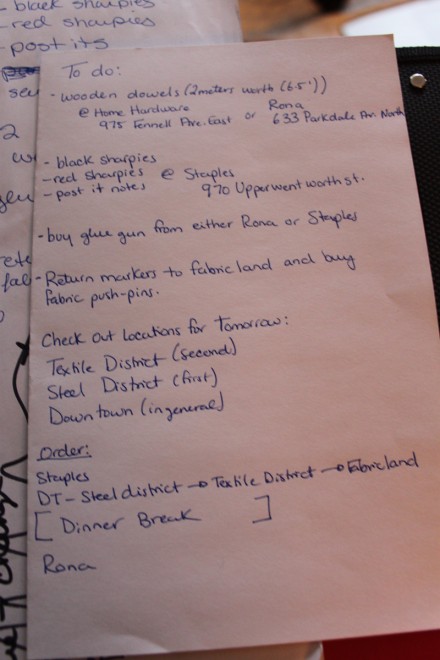 - black sharpies
- red sharpies
- post its
To do:
- wooden dowels (2 meters worth (6.5'))
@ Home Hardware or Rona
975 Fennell Ave. East 633 Parkdale Av. North
- black sharpies
- red sharpies @ Staples
- post it notes 970 Upper wentworth st.
- buy glue gun from either Rona or Staples
- Return markers to fabricland and buy
fabric push-pins.
Check out locations for Tomorrow:
Textile District (second)
Steel District (first)
Downtown (in general)
Order:
Staples
DT - Steel district → Textile District → Fabricland
[ Dinner Break ]
Rona